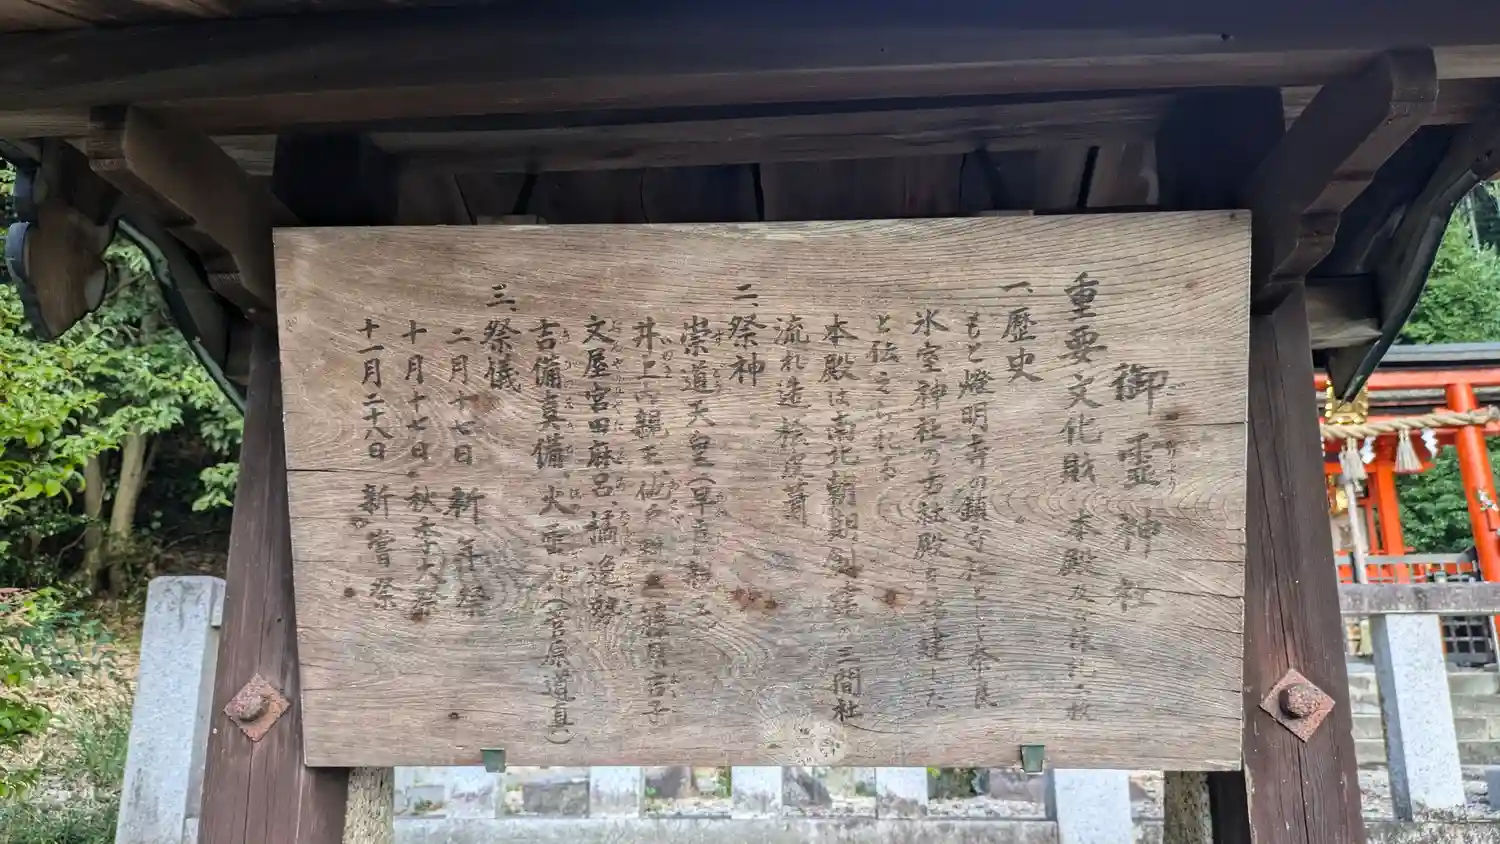 御霊神社
重要文化財 本殿及び棟札一枚
一、歴史
もと燈明寺の鎮守社として奈良
氷室神社の古社殿を建した
と伝えられる
本殿は南北朝期創建 三間社
流れ造桧皮葺
二、祭神
崇道天皇(早良親王)
井上内親王、他戸親王、藤原吉子
文屋宮田麻呂、橘逸勢
吉備真備、火雷神(菅原道真)
三、祭儀
二月十七日 新年祭
十月十七日 秋季大祭
十一月二十八日 新嘗祭